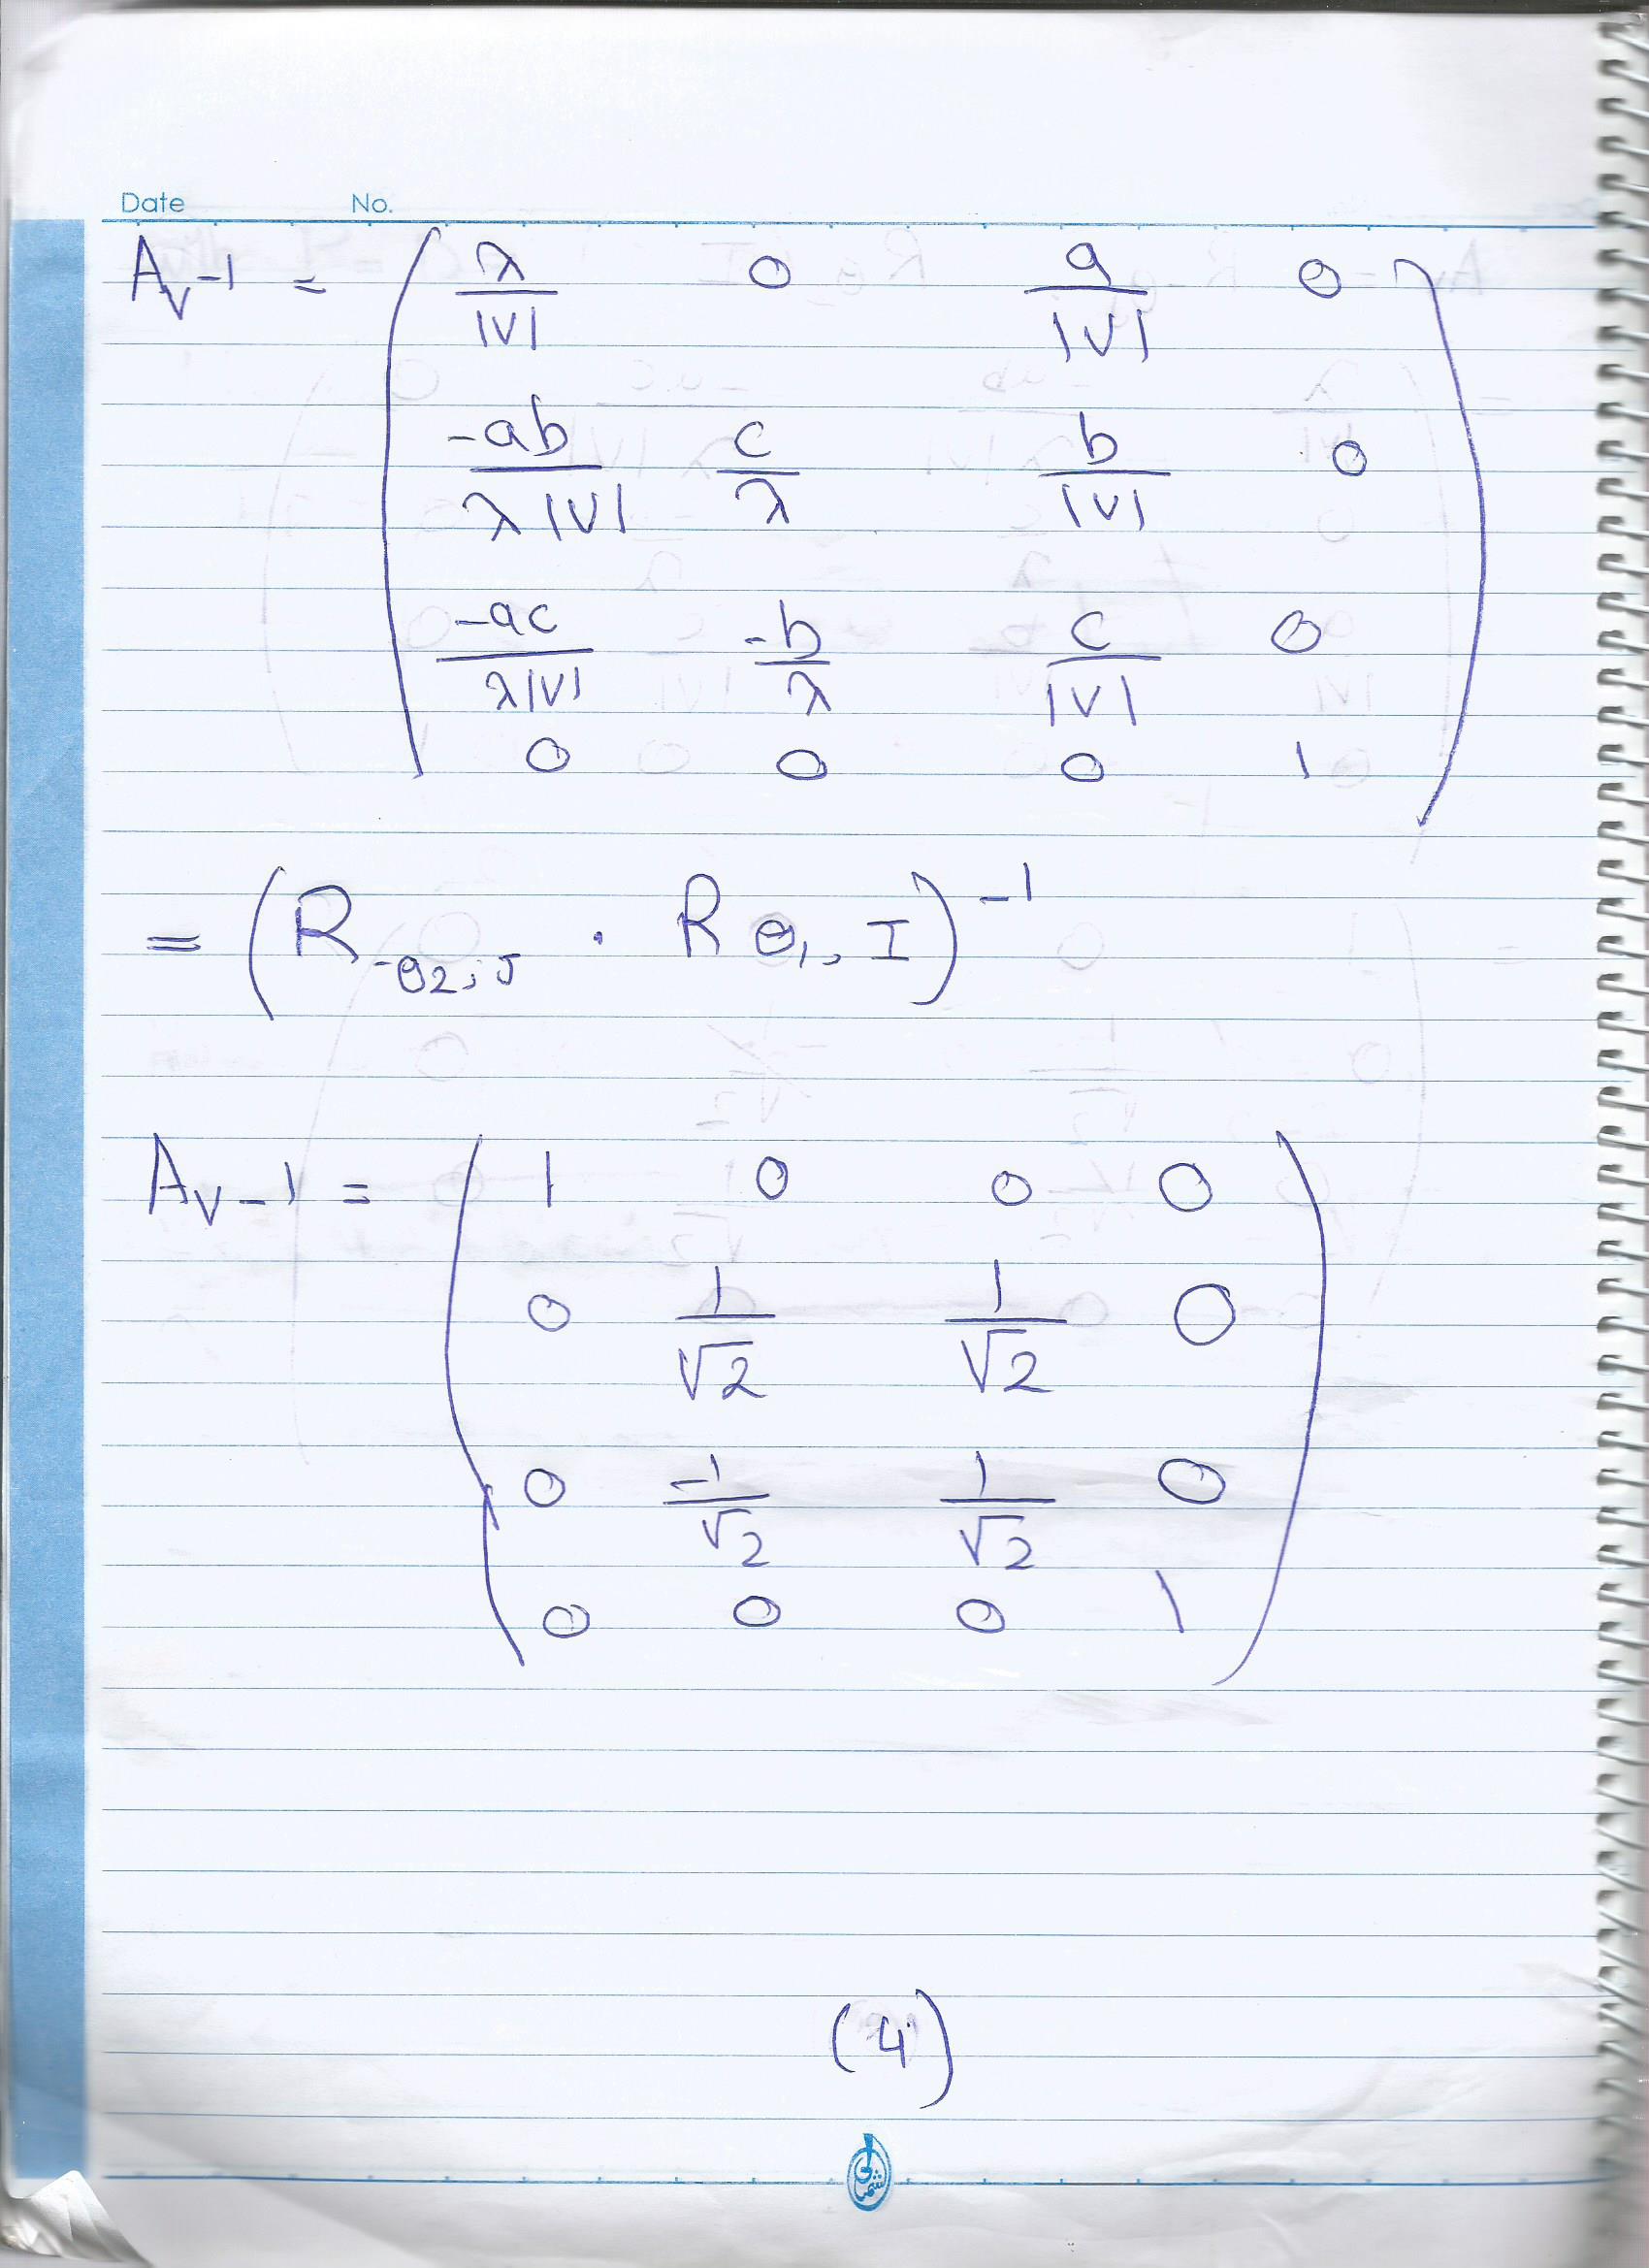 Date No.
A_V-1 = ( λ/|V| 0 a/|V| 0
-ab/λ|V| c/λ b/|V| 0
-ac/λ|V| -b/λ c/|V| 0
0 0 0 1 )
= (R_-θ2,J · R_θ1,I)^-1
A_V-1 = ( 1 0 0 0
0 1/√2 1/√2 0
0 -1/√2 1/√2 0
0 0 0 1 )
(4)